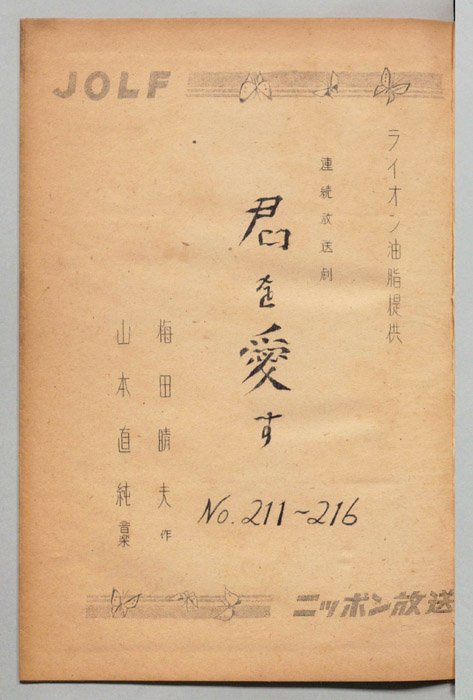 JOLF
ライオン油脂提供
連続放送劇
君を愛す
No. 211~216
梅田晴夫 作
山本直純 音楽
ニッポン放送